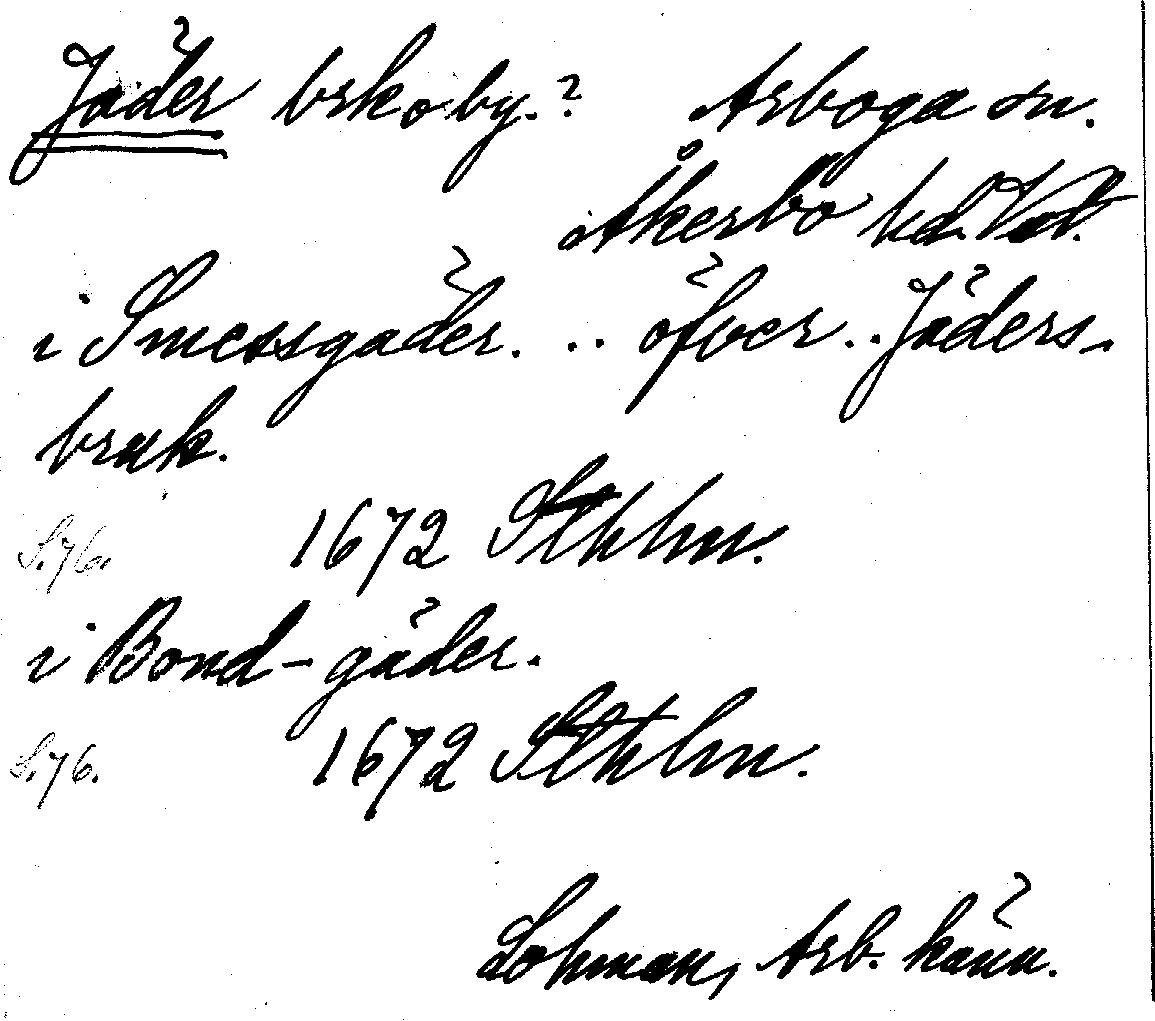 Jäder brk o by.? Arboga sn.
Åkerbo hd. Vstl.
i Smessgäder. .. öfver .. Jäders-
bruk.
S.76. 1672 Sthlm.
i Bond-gäder.
S.76. 1672 Sthlm.
Lohman, Arb. känn.